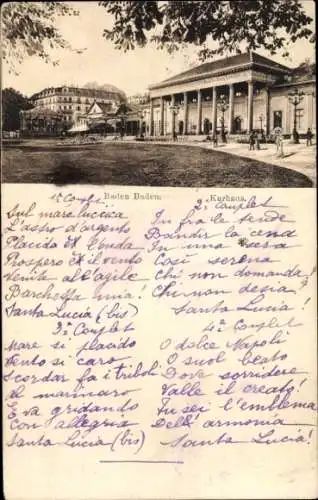 Baden Baden
Kurhaus.
1e Couplet
Sul mare luccica
L'astro d'argento
Placida è l'onda
Prospero è il vento
Venite all'agile
Barchetta mia!
Santa Lucia (bis)
2e Couplet
In fra le tende
Bandir la cena
In una sera
Così serena
Chi non domanda!
Chi non desia?
Santa Lucia!
3e Couplet
Mare si placido
Vento si caro
Scordar fa i triboli
Al marinaro
E va gridando
Con allegria
Santa Lucia (bis)
4e Couplet
O dolce Napoli
O suol beato
Dove sorridere
Valle il creato!
Tu sei l'emblema
Dell' armonia
Santa Lucia!